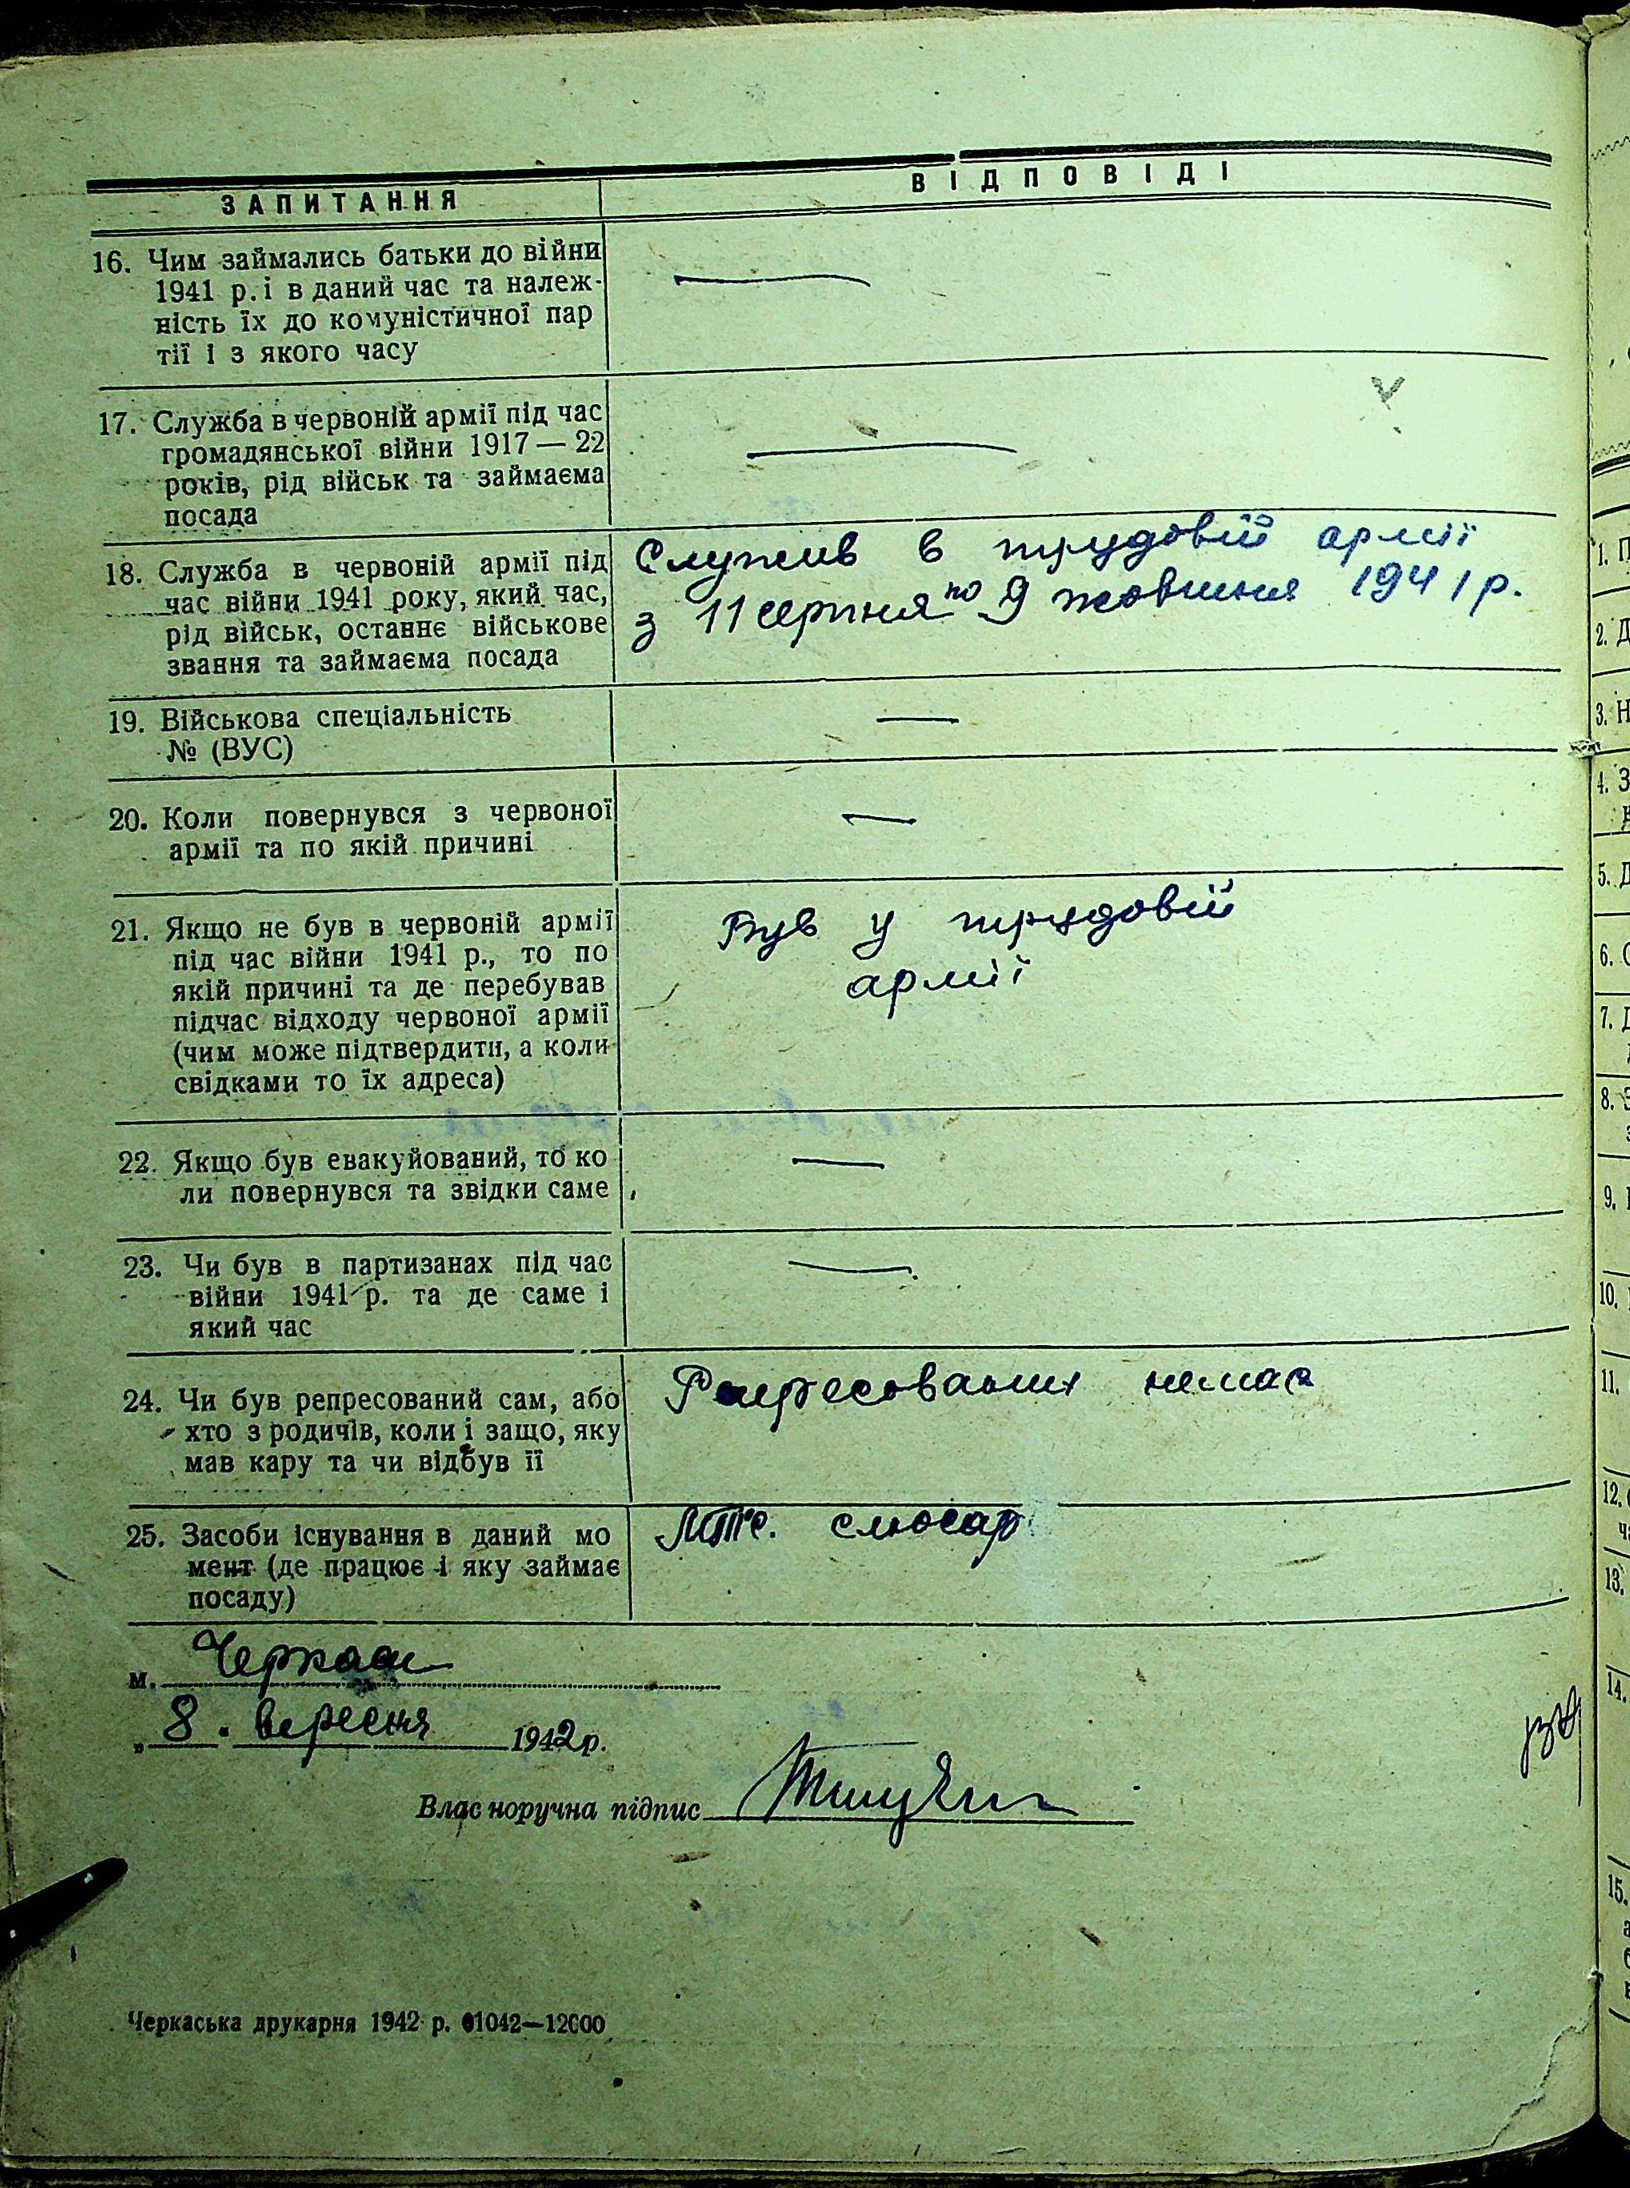 ЗАПИТАННЯ
ВІДПОВІДІ
16. Чим займались батьки до війни
1941 р. і в даний час та належ-
ність їх до комуністичної пар
тії і з якого часу
—
17. Служба в червоній армії під час
громадянської війни 1917 — 22
років, рід військ та займаєма
посада
—
18. Служба в червоній армії під
час війни 1941 року, який час,
рід військ, останнє військове
звання та займаєма посада
Служив в трудовій армії
з 11 серпня по 9 жовтня 1941 р.
19. Військова спеціальність
№ (ВУС)
—
20. Коли повернувся з червоної
армії та по якій причині
—
21. Якщо не був в червоній армії
під час війни 1941 р., то по
якій причині та де перебував
підчас відходу червоної армії
(чим може підтвердити, а коли
свідками то їх адреса)
Був у трудовій
армії
22. Якщо був евакуйований, то ко
ли повернувся та звідки саме
—
23. Чи був в партизанах під час
війни 1941 р. та де саме і
який час
—
24. Чи був репресований сам, або
хто з родичів, коли і защо, яку
мав кару та чи відбув її
Репресованих немає
25. Засоби існування в даний мо
мент (де працює і яку займає
посаду)
МТС. слюсар
м. Черкаси
„ 8. вересня 1942 р.
Власноручна підпис
Черкаська друкарня 1942 р. 01042—12000
1. П
2. Д
3. Н
4. З
5. Д
6. С
7. Д
8. З
9.
10.
11.
12.
13.
14.
15.